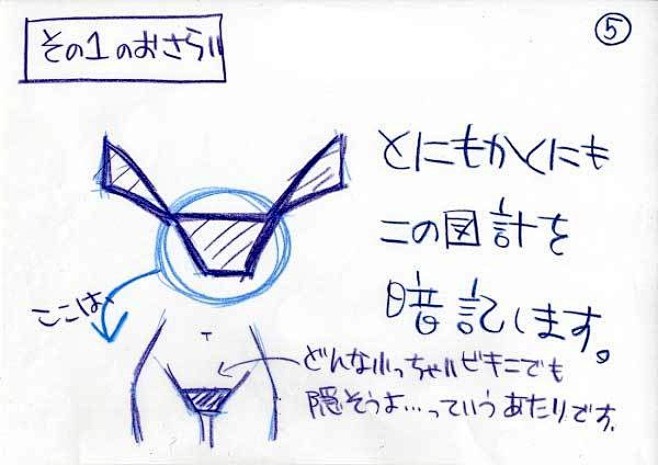 その1のおさらい
⑤
とにもかくにも
この図計を
暗記します。
ここは、
どんな小っちゃいビキニでも
隠そうよ…っていうあたりです。